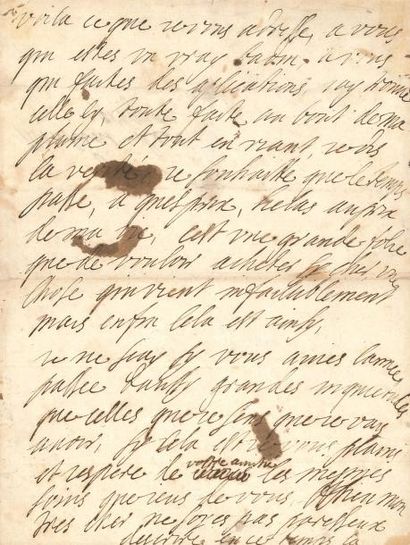 voila ce que je vous adresse, a vous
qui estes un vray a vous
qui faites des aplications, jay trouvé
celle cy toute faite au bout de ma
plume et tout en riant vois
la verité, je souhaitte que le temps
passe, a quel prix, helas au prix
de ma vie, cest une grande folie
que de vouloir acheter sy cher une
chose qui vient infailliblement
mais enfin cela est ainsy,
je ne scay sy vous avies lannee
passee daussy grandes inquietudes
que celles que je sans que je vay
avoir, sy cela est je vous plains
et espere de vostre amitié les mesmes
soins que jeus de vous, mon
tres cher ne soyes pas paresseux
descrire en ce temps la